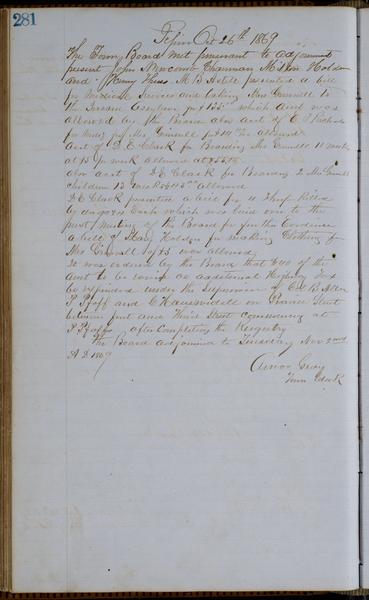 281
Pepin Oct 26th 1869
The Town Board met pursuant to adjournment
present John Newcomb Chairman Milton Holden
and Henry Theis M B Axtell presented a bill
for Medical Services and taking Mrs Gunnell to
the Insane Asylum for $135 which acct was
allowed by the Board also acct of
for Mrs Gunnell for $14 allowed
acct of D E Clark for Boarding Mrs Gunnell 11 weeks
at $5 pr week allowed at $55
also acct of D E Clark for Boarding 2 Mrs Gunnell
children 13 weeks allowed
D E Clark presented a bill for 11 Sheep Killed
by dogs which was laid over to the
next meeting of the Board for further Evidence
a bill of Mary Holden for making Clothing for
Mrs Gunnell for $5 was allowed
It was ordered by the Board that $40 of the
amt to be raised as additional Highway Tax
be expended under the Supervision of
P Pfaff and C Hauswedell on Prairie Street
between first and Third Street commencing at
P Pfaffs after Completing the Registry
The Board adjourned to Tuesday Nov 2nd
A D 1869
Amos Gray
Town Clerk